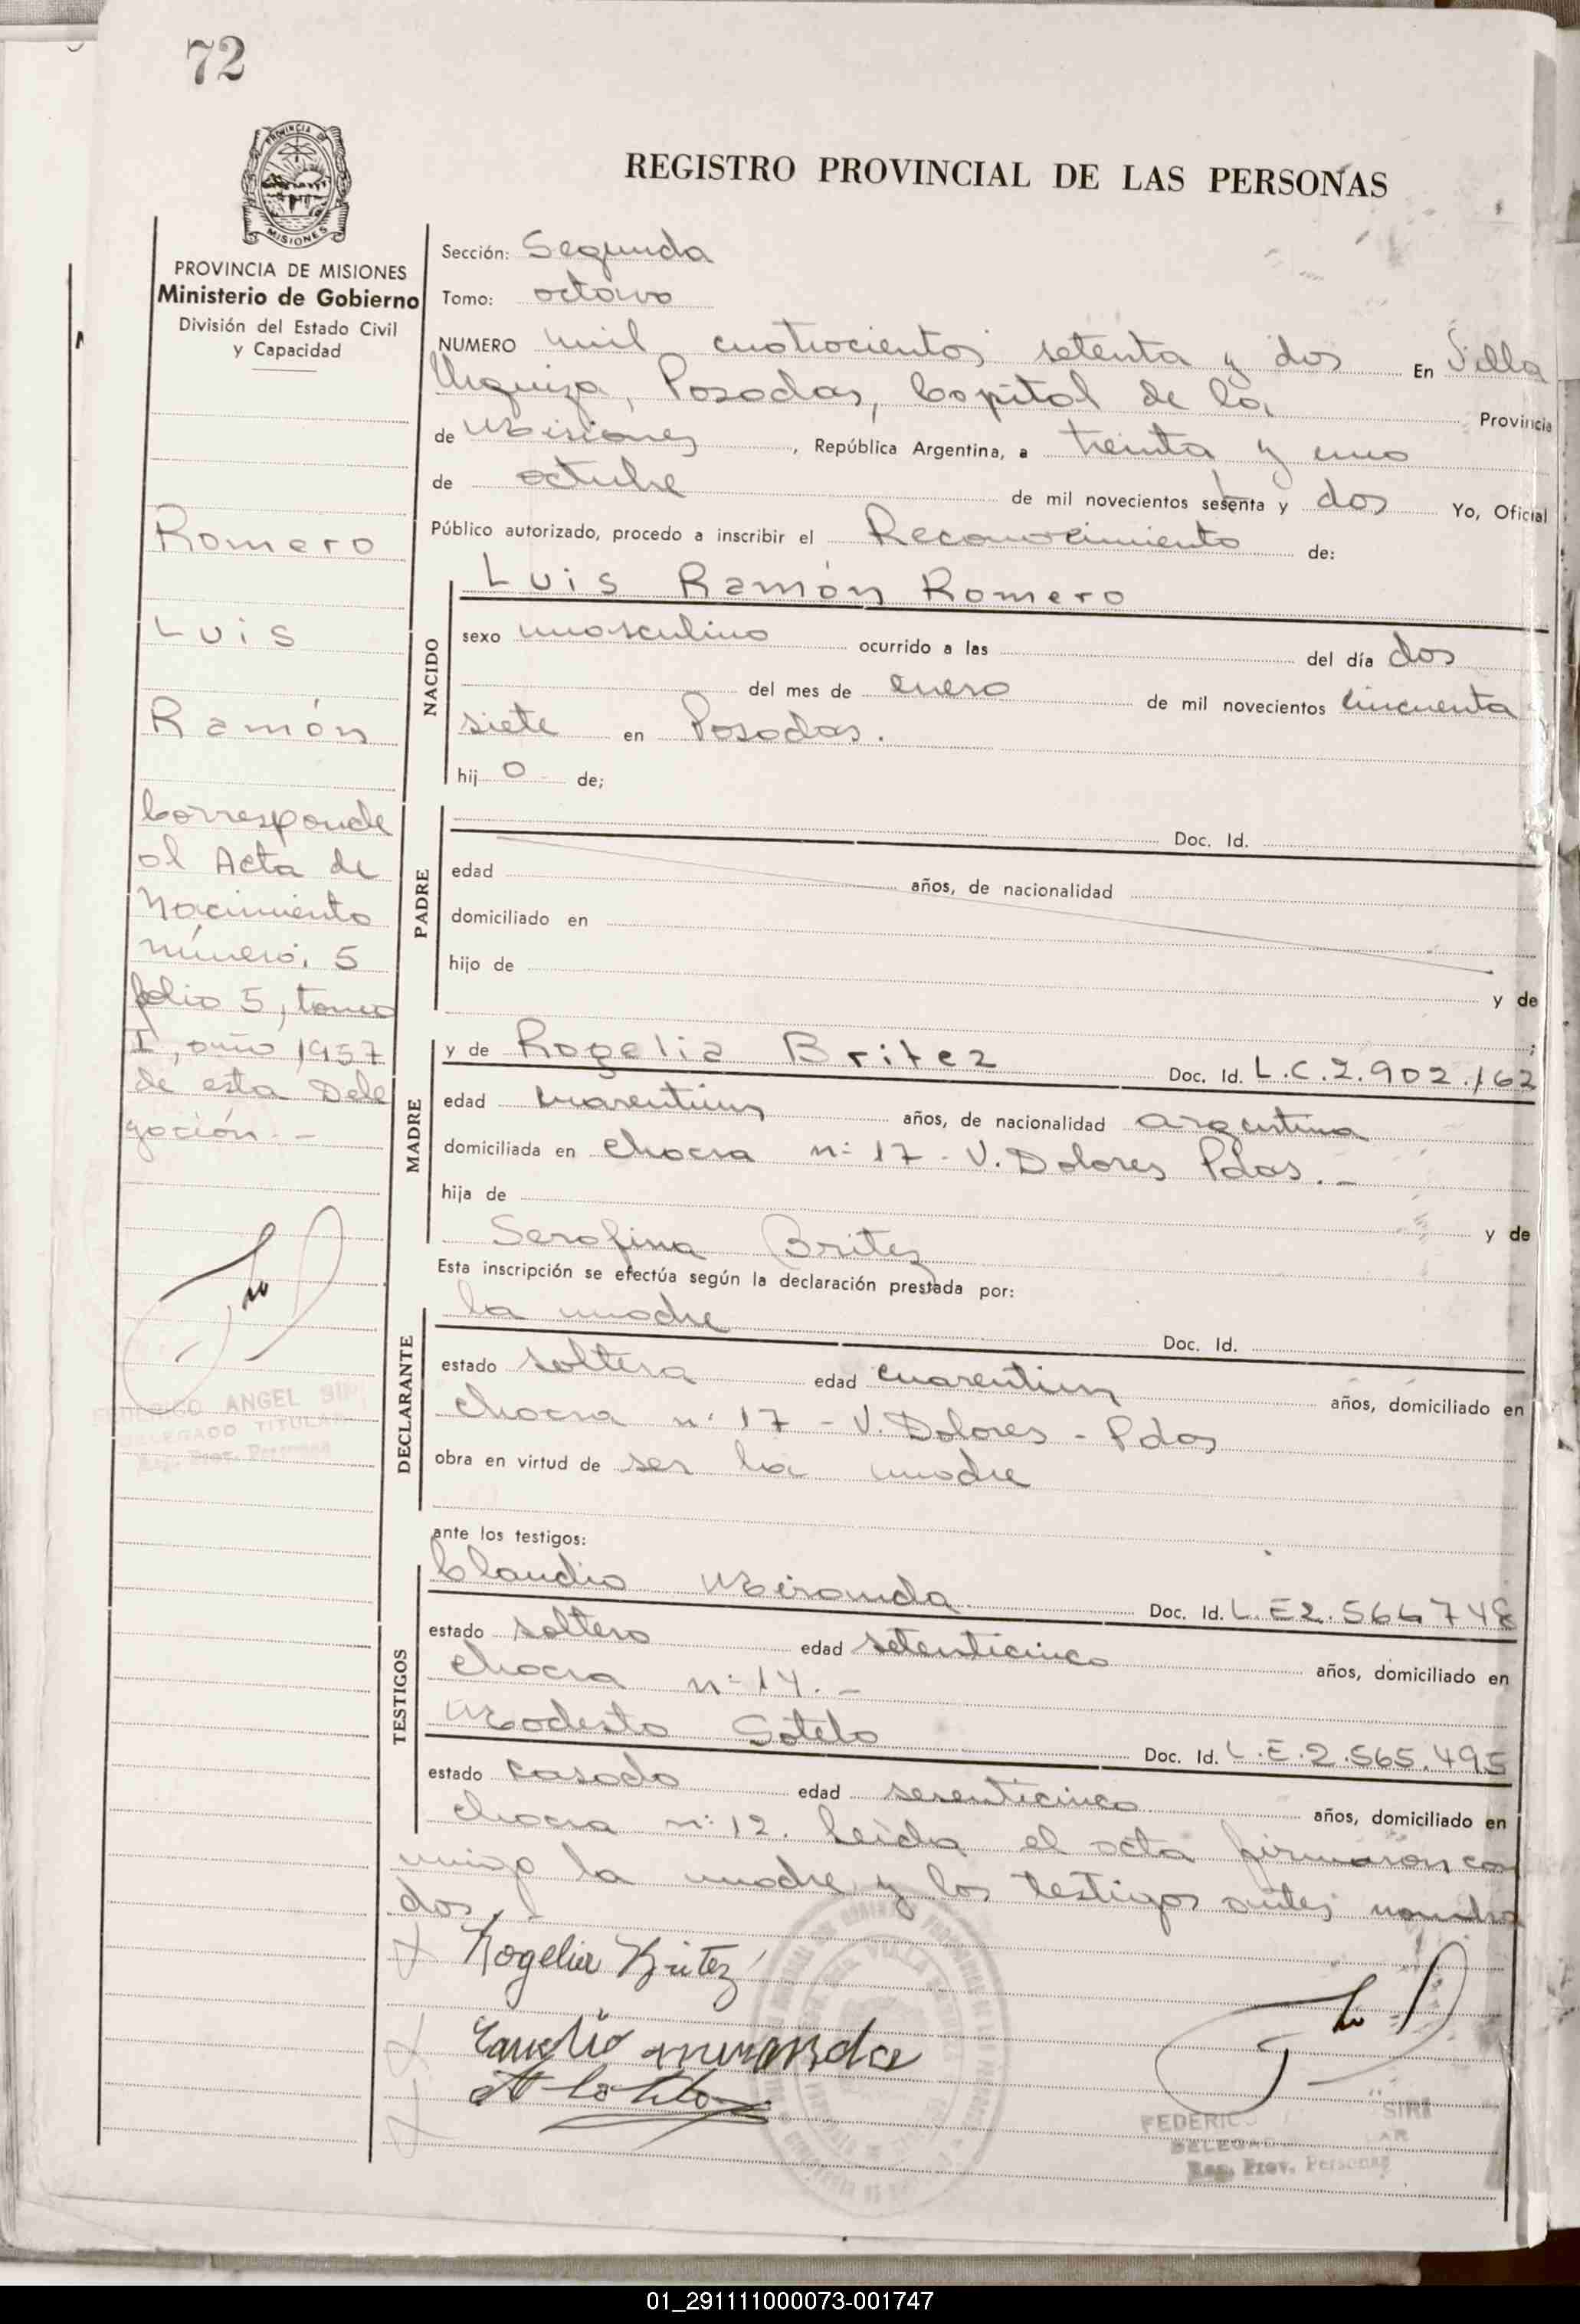 72
REGISTRO PROVINCIAL DE LAS PERSONAS
PROVINCIA DE MISIONES
MISIONES
PROVINCIA DE MISIONES
Ministerio de Gobierno
División del Estado Civil
y Capacidad
Romero
Luis
Ramón
Corresponde
al Acta de
Nacimiento
número: 5
folio 5, tomo
I, año 1957
de esta Dele
gación. -
ANGEL
DELEGADO TITULAR
Reg. Prov. Personas
Sección: Segunda
Tomo: octavo
NUMERO mil cuatrocientos setenta y dos En Villa
Urquiza, Posadas, Capital de la Provincia
de Misiones, República Argentina, a treinta y uno
de octubre de mil novecientos setenta y dos Yo, Oficial
Público autorizado, procedo a inscribir el Reconocimiento de:
NACIDO
Luis Ramón Romero
sexo masculino ocurrido a las del día dos
del mes de enero de mil novecientos cincuenta
siete en Posadas.
hij o de;
PADRE
Doc. Id.
edad años, de nacionalidad
domiciliado en
hijo de
y de
;
MADRE
y de Rogelia Britez Doc. Id. L.C.2.902.162
edad cuarentiun años, de nacionalidad argentina
domiciliada en chacra n: 17 - V. Dolores Pdas. -
hija de
y de
Serafina Britez
Esta inscripción se efectúa según la declaración prestada por:
DECLARANTE
la madre Doc. Id.
estado soltera edad cuarentiun años, domiciliado en
chacra n: 17 - V. Dolores - Pdas
obra en virtud de ser la madre
ante los testigos:
TESTIGOS
Claudio Miranda Doc. Id. L.E 2.566748
estado soltero edad setenticinco años, domiciliado en
chacra n: 14. -
Modesto Sotelo Doc. Id. L.E.2.565.495
estado casado edad sesenticinco años, domiciliado en
chacra n: 12. Leída el acta firmaron con
migo la madre y los testigos antes nombra
dos.
Rogelia Britez
Claudio miranda
FEDERICO SIRI
Reg. Prov. Personas
01_291111000073-001747